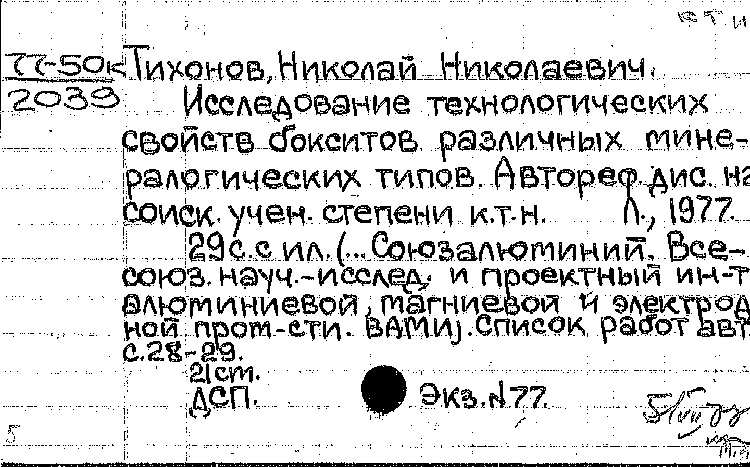 к т н
77-50к Тихонов, Николай Николаевич.
2039 Исследование технологических
свойств бокситов различных мине-
ралогических типов. Автореф дис. на
соиск. учен. степени к.т.н. Л., 1977.
29 с. с ил. (... Союзалюминий. Все-
союз. науч.-исслед. и проектный ин-т
алюминиевой, магниевой и электрод
ной пром-сти. ВАМИ). Список работ авт
с. 28-29.
21 ст.
ДСП. Экз. № 77.
5